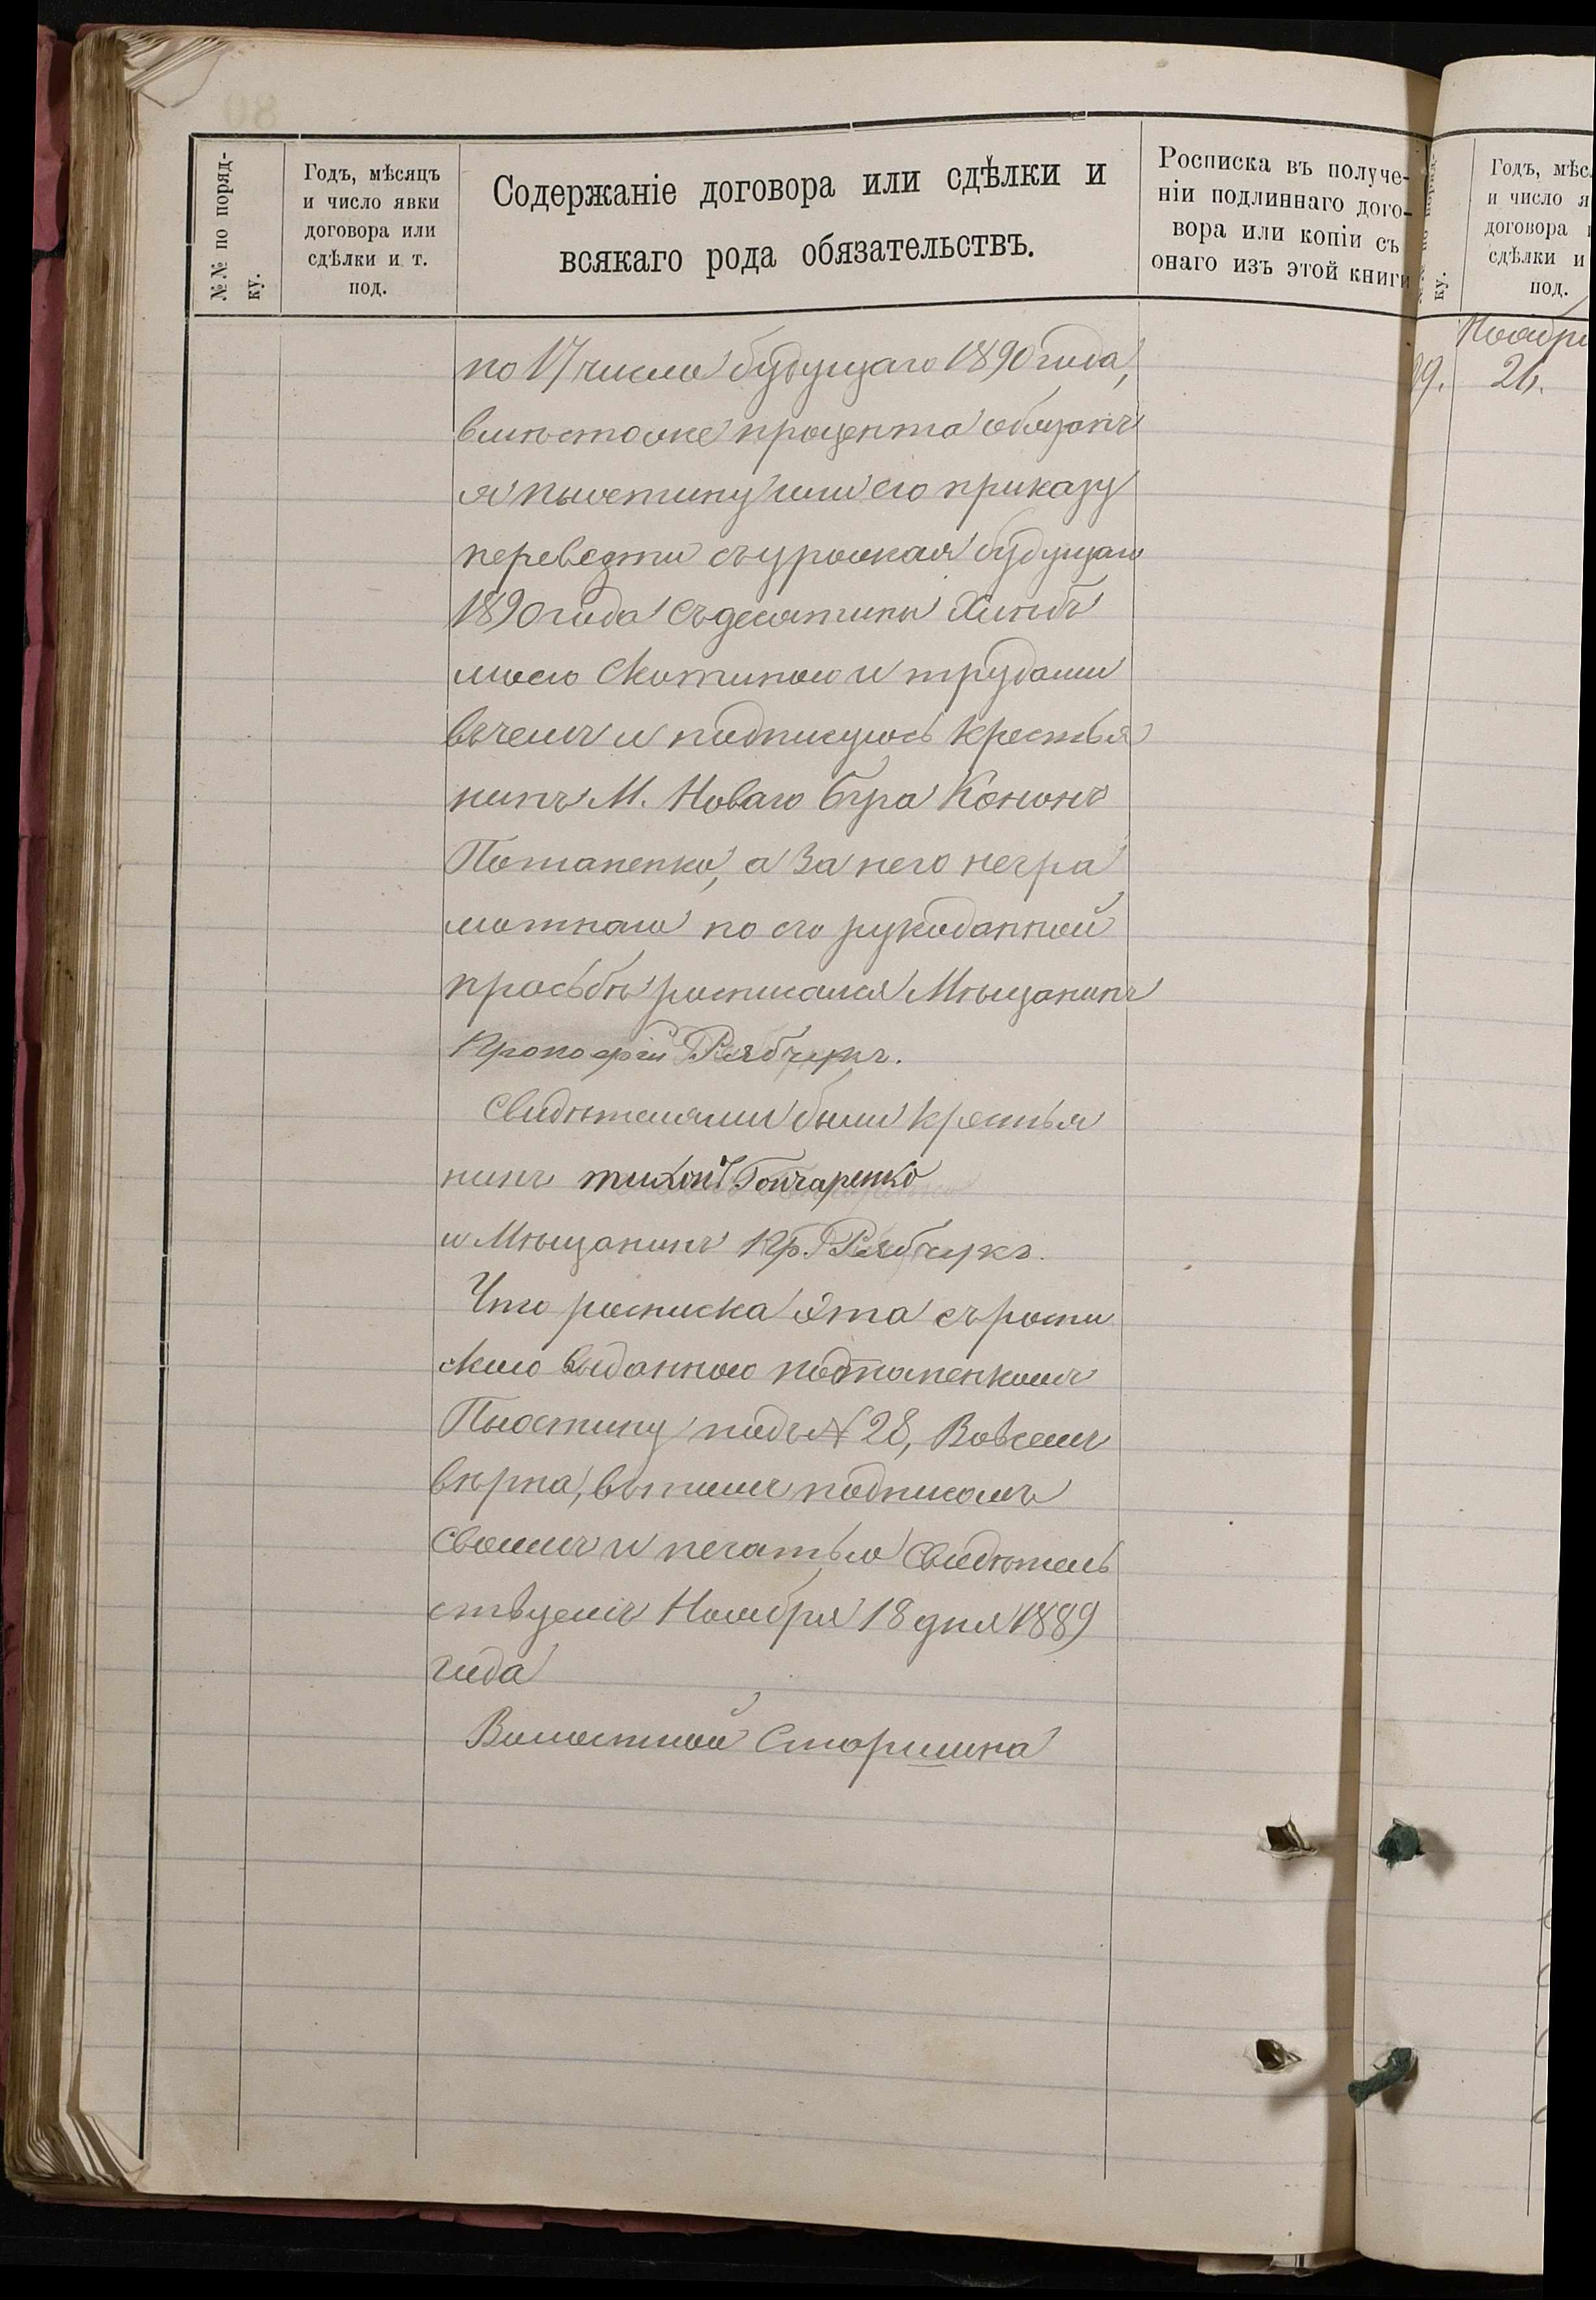 80
№№ по поряд-
ку.
Годъ, мѣсяцъ
и число явки
договора или
сдѣлки и т.
под.
Содержаніе договора или сдѣлки и
всякаго рода обязательствъ.
Росписка въ получе-
ніи подлиннаго дого-
вора или копіи съ
онаго изъ этой книги
по 17 число будущаго 1890 года,
вмѣсто же процента обязанъ
я Пьостину или его приказу
перевезти съ урожая будущаго
1890 года съ десятины Хлѣбъ
моею Скотиною и трудами
въ чемъ и подписуюсь Крестья
нинъ М. Новаго Буга Кононъ
Потапенко, а За него негра
мотнаго по его рукоданной
просьбѣ росписался Мѣщанинъ
Прокофій Рябчукъ.
Свидѣтелями были крестья
нинъ тихонъ Гончаренко
и Мѣщанинъ Пр. Рябчукъ.
Что росписка эта съ роспи
скою выданною подтапенкомъ
Пьостину подъ № 28, Вовсемъ
вѣрна, вътомъ подписомъ
своимъ и печатью Свидѣтель
ствуемъ Ноября 18 дня 1889
года
Волостной Старшина
ку.
Годъ, мѣс
и число я
договора
сдѣлки и
под.
Ноябри
29.
21.